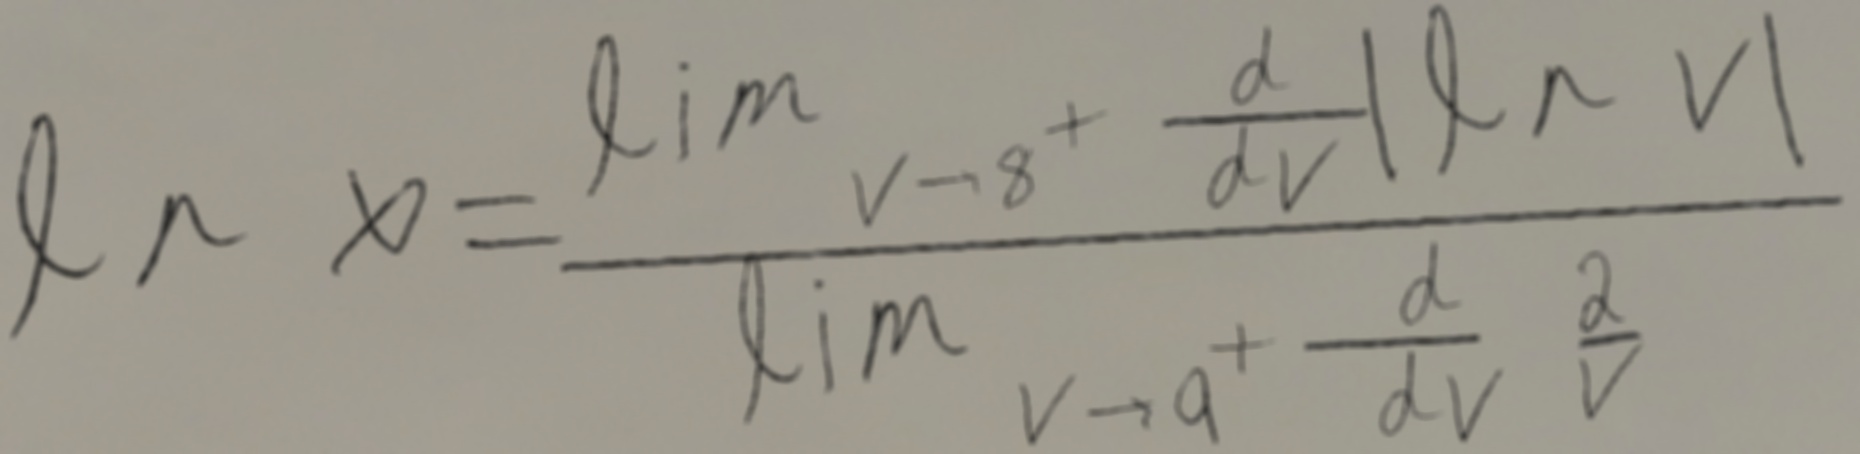 \ln x = \frac{\lim_{v \to 8^+} \frac{d}{dv} |\ln v|}{\lim_{v \to 9^+} \frac{d}{dv} \frac{2}{v}}